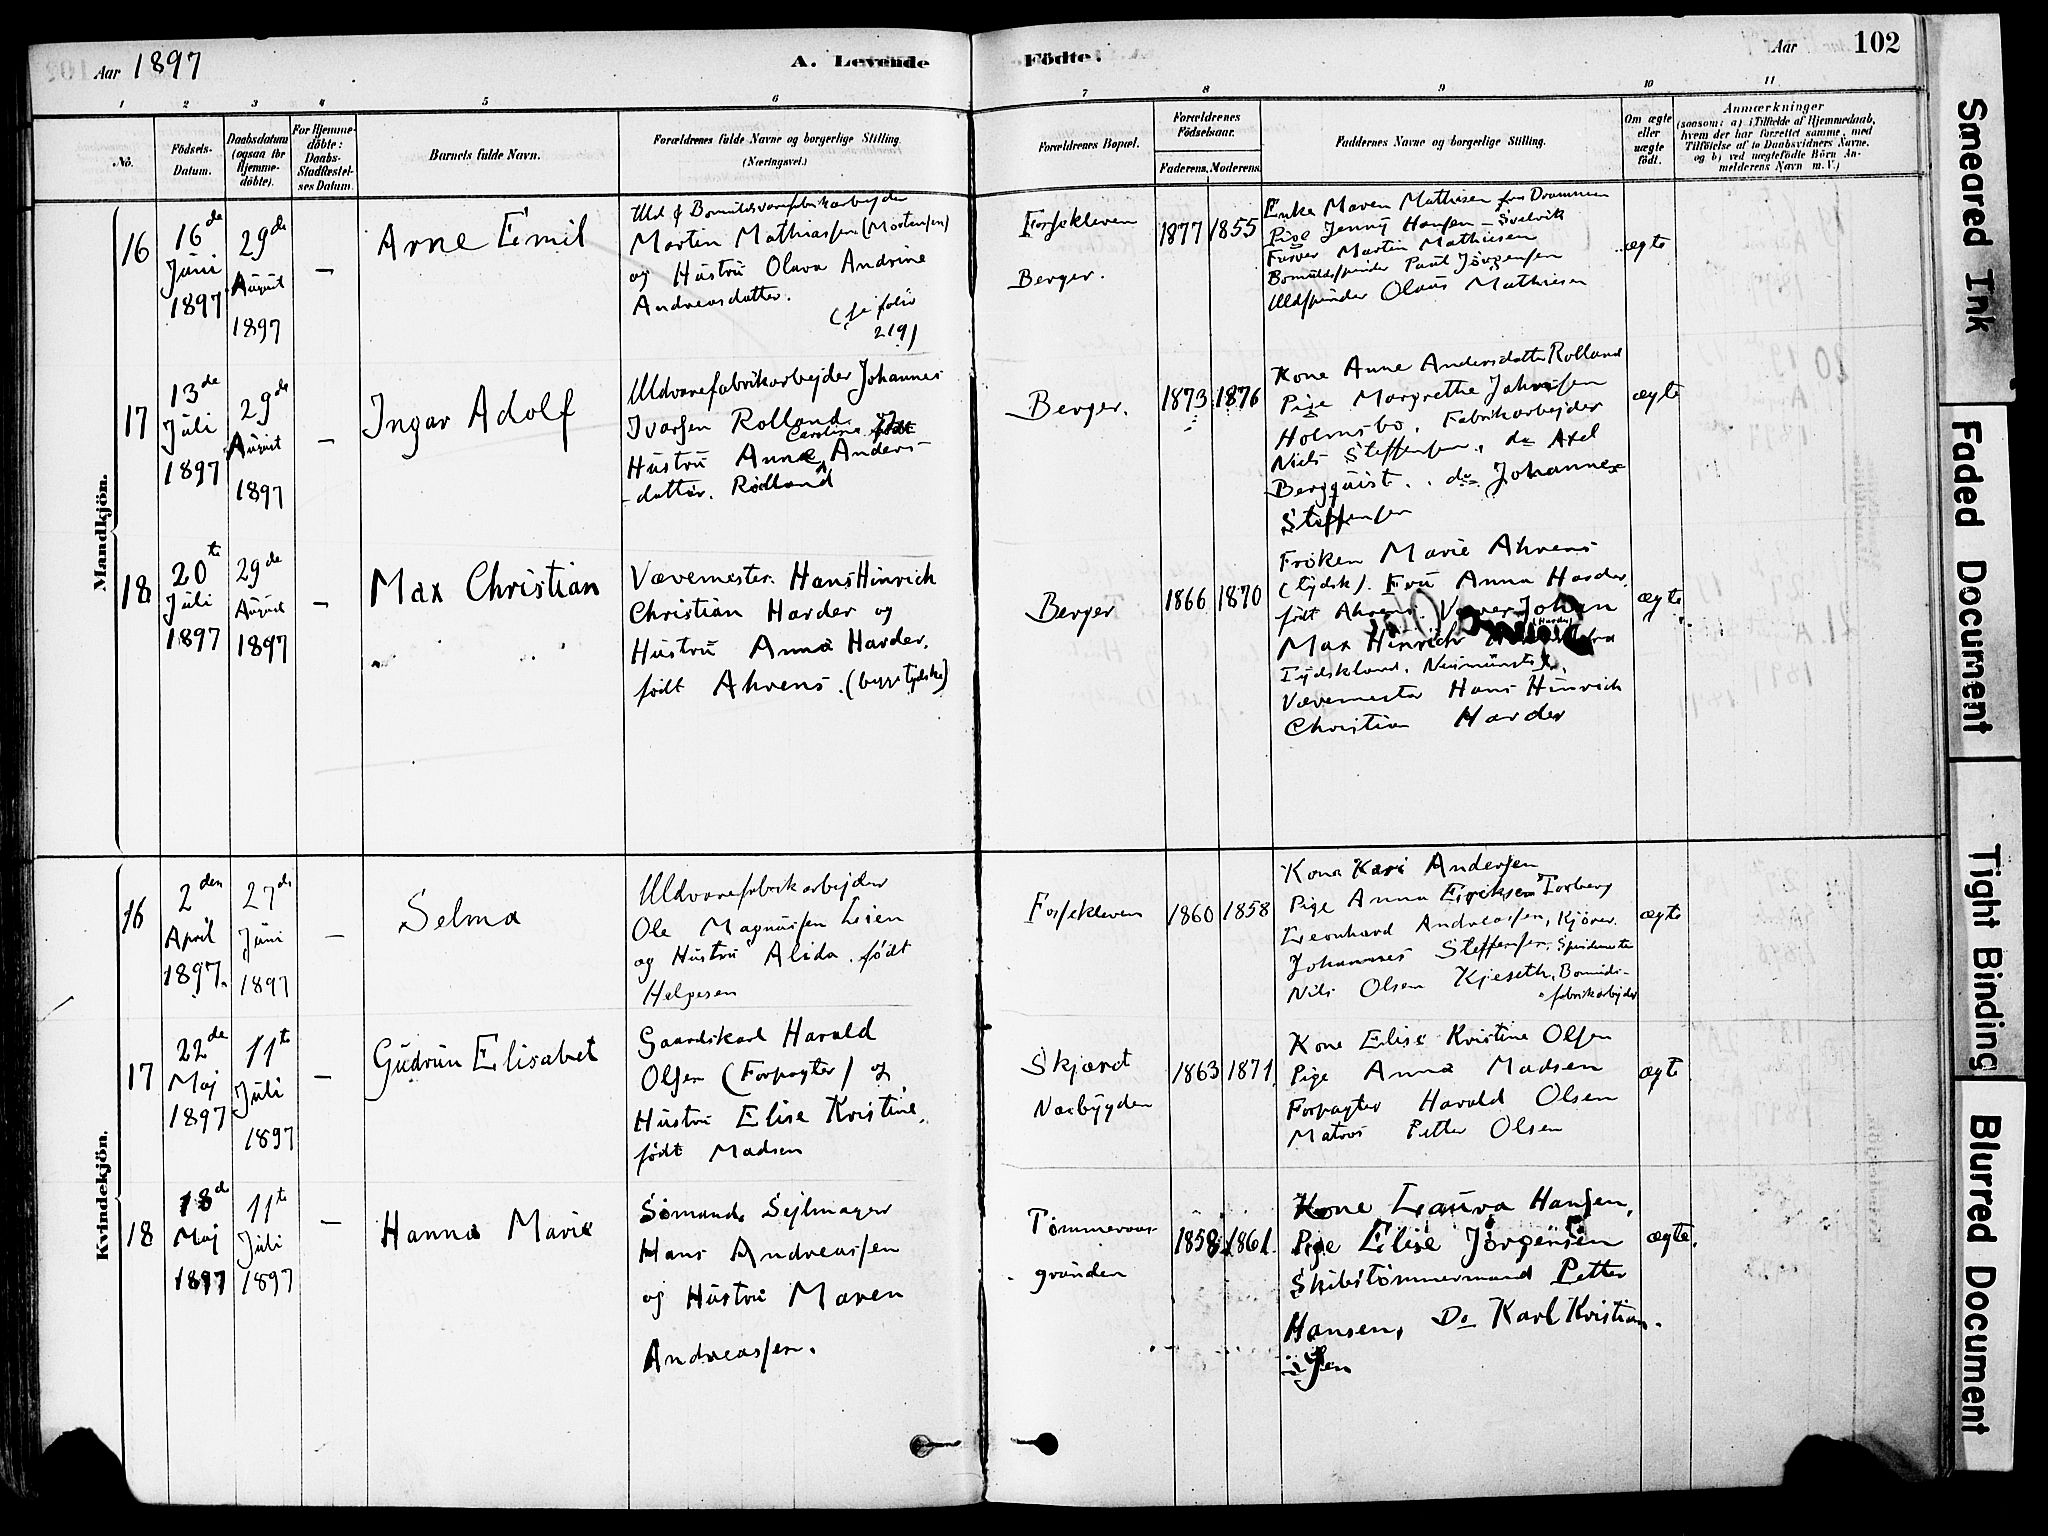 Aar 1897
A. Levende
Födte.
Aar
102
1 2 3 4 5 6 7 8 9 10 11
No.
Födsels-
Datum.
Daabsdatum
(ogsaa for
Hjemme-
döbte).
For Hjemme-
döbte:
Daabs-
Stadfæstel-
ses Datum.
Barnets fulde Navn.
Forældrenes fulde Navne og borgerlige Stilling.
(Næringsvei.)
Forældrenes Bopæl.
Forældrenes
Födselsaar.
Faderens. Moderens.
Faddernes Navne og borgerlige Stilling.
Om ægte
eller
uægte
födt.
Anmærkninger
(saasom: a) i Tilfælde af Hjemmedaab,
hvem der har forrettet samme, med
Tilföielse af to Daabsvidners Navne,
og b) ved uægtefödte Börn An-
melderens Navn m. V.)
Mandkjön.
16
16de
Juni
1897
29de
August
1897
—
Arne Emil
Uld & Bomuldsvarefabrikarbejder
Martin Mathiassen (Mortensen)
og Hustru Olava Andrine
Andreasdatter.
(se folio
219)
Fossekleven
Berger.
1877 1855
Enke Maren Mathisen fra Drammen
Pige Jenny Hansen - Svelvik
Farver Martin Mathiesen
Bomuldspinder Paul Jørgensen
Uldspinder Olaus Mathiesen
ægte
17
13de
Juli
1897
29de
August
1897
—
Ingar Adolf
Uldvarefabrikarbejder Johannes
Ivarsen Rolland.
Caroline født
Hustru Anna Anders
-datter. Rolland
Berger.
1873 1876
Kone Anne Andersdatter Rolland
Pige Margrethe Johnsen
Holmsbo. Fabrikarbejder
Niels Steffensen, do Axel
Bergquist. do Johannes
Steffensen
ægte
18
20te
Juli
1897
29de
August
1897
—
Max Christian
Vævemester. Hans Hinrich
Christian Harder og
Hustru Anna Harder.
født Ahrens. (begge tydske)
Berger
1866 1870
Frøken Marie Ahrens
(tydsk). Fru Anna Harder,
født Ahrens. Væver Johan
Max Hinrich (Harder) fra
Tydskland. Neumünster.
Vævemester Hans Hinrich
Christian Harder
ægte
Kvindekjön.
16
2den
April
1897.
27de
Juni
1897
—
Selma
Uldvarefabrikarbejder
Ole Magnussen Lien
og Hustru Alida. født
Helgesen
Fossekleven
1860 1858
Kona Kari Andersen
Pige Anna Eriksen Torberg
Leonhard Andreassen, Kjører.
Johannes Steffensen. Spindemester
Nils Olsen Kjeseth, Bomulds-
fabrikarbejder
ægte
17
22de
Maj
1897
11te
Juli
1897
—
Gudrun Elisabet
Gaardskarl Harald
Olsen (Forpagter) og
Hustru Elise Kristine,
født Madsen
Skjæret
Nesbygden
1863 1871
Kone Elise Kristine Olsen
Pige Anna Madsen
Forpagter Harald Olsen
Matros Petter Olsen
ægte
18
18de
Maj
1897
11te
Juli
1897
—
Hanna Marie
Sømand, Sejlmager
Hans Andreassen
og Hustru Maren
Andreassen.
Tømmeraas
grunden
1858 1861.
Kone Laura Hansen,
Pige Elise Jørgensen
Skibstømmermand Petter
Hansen, Do Karl Kristian-
sen
ægte.
Smeared Ink
Faded Document
Tight Binding
Blurred Document